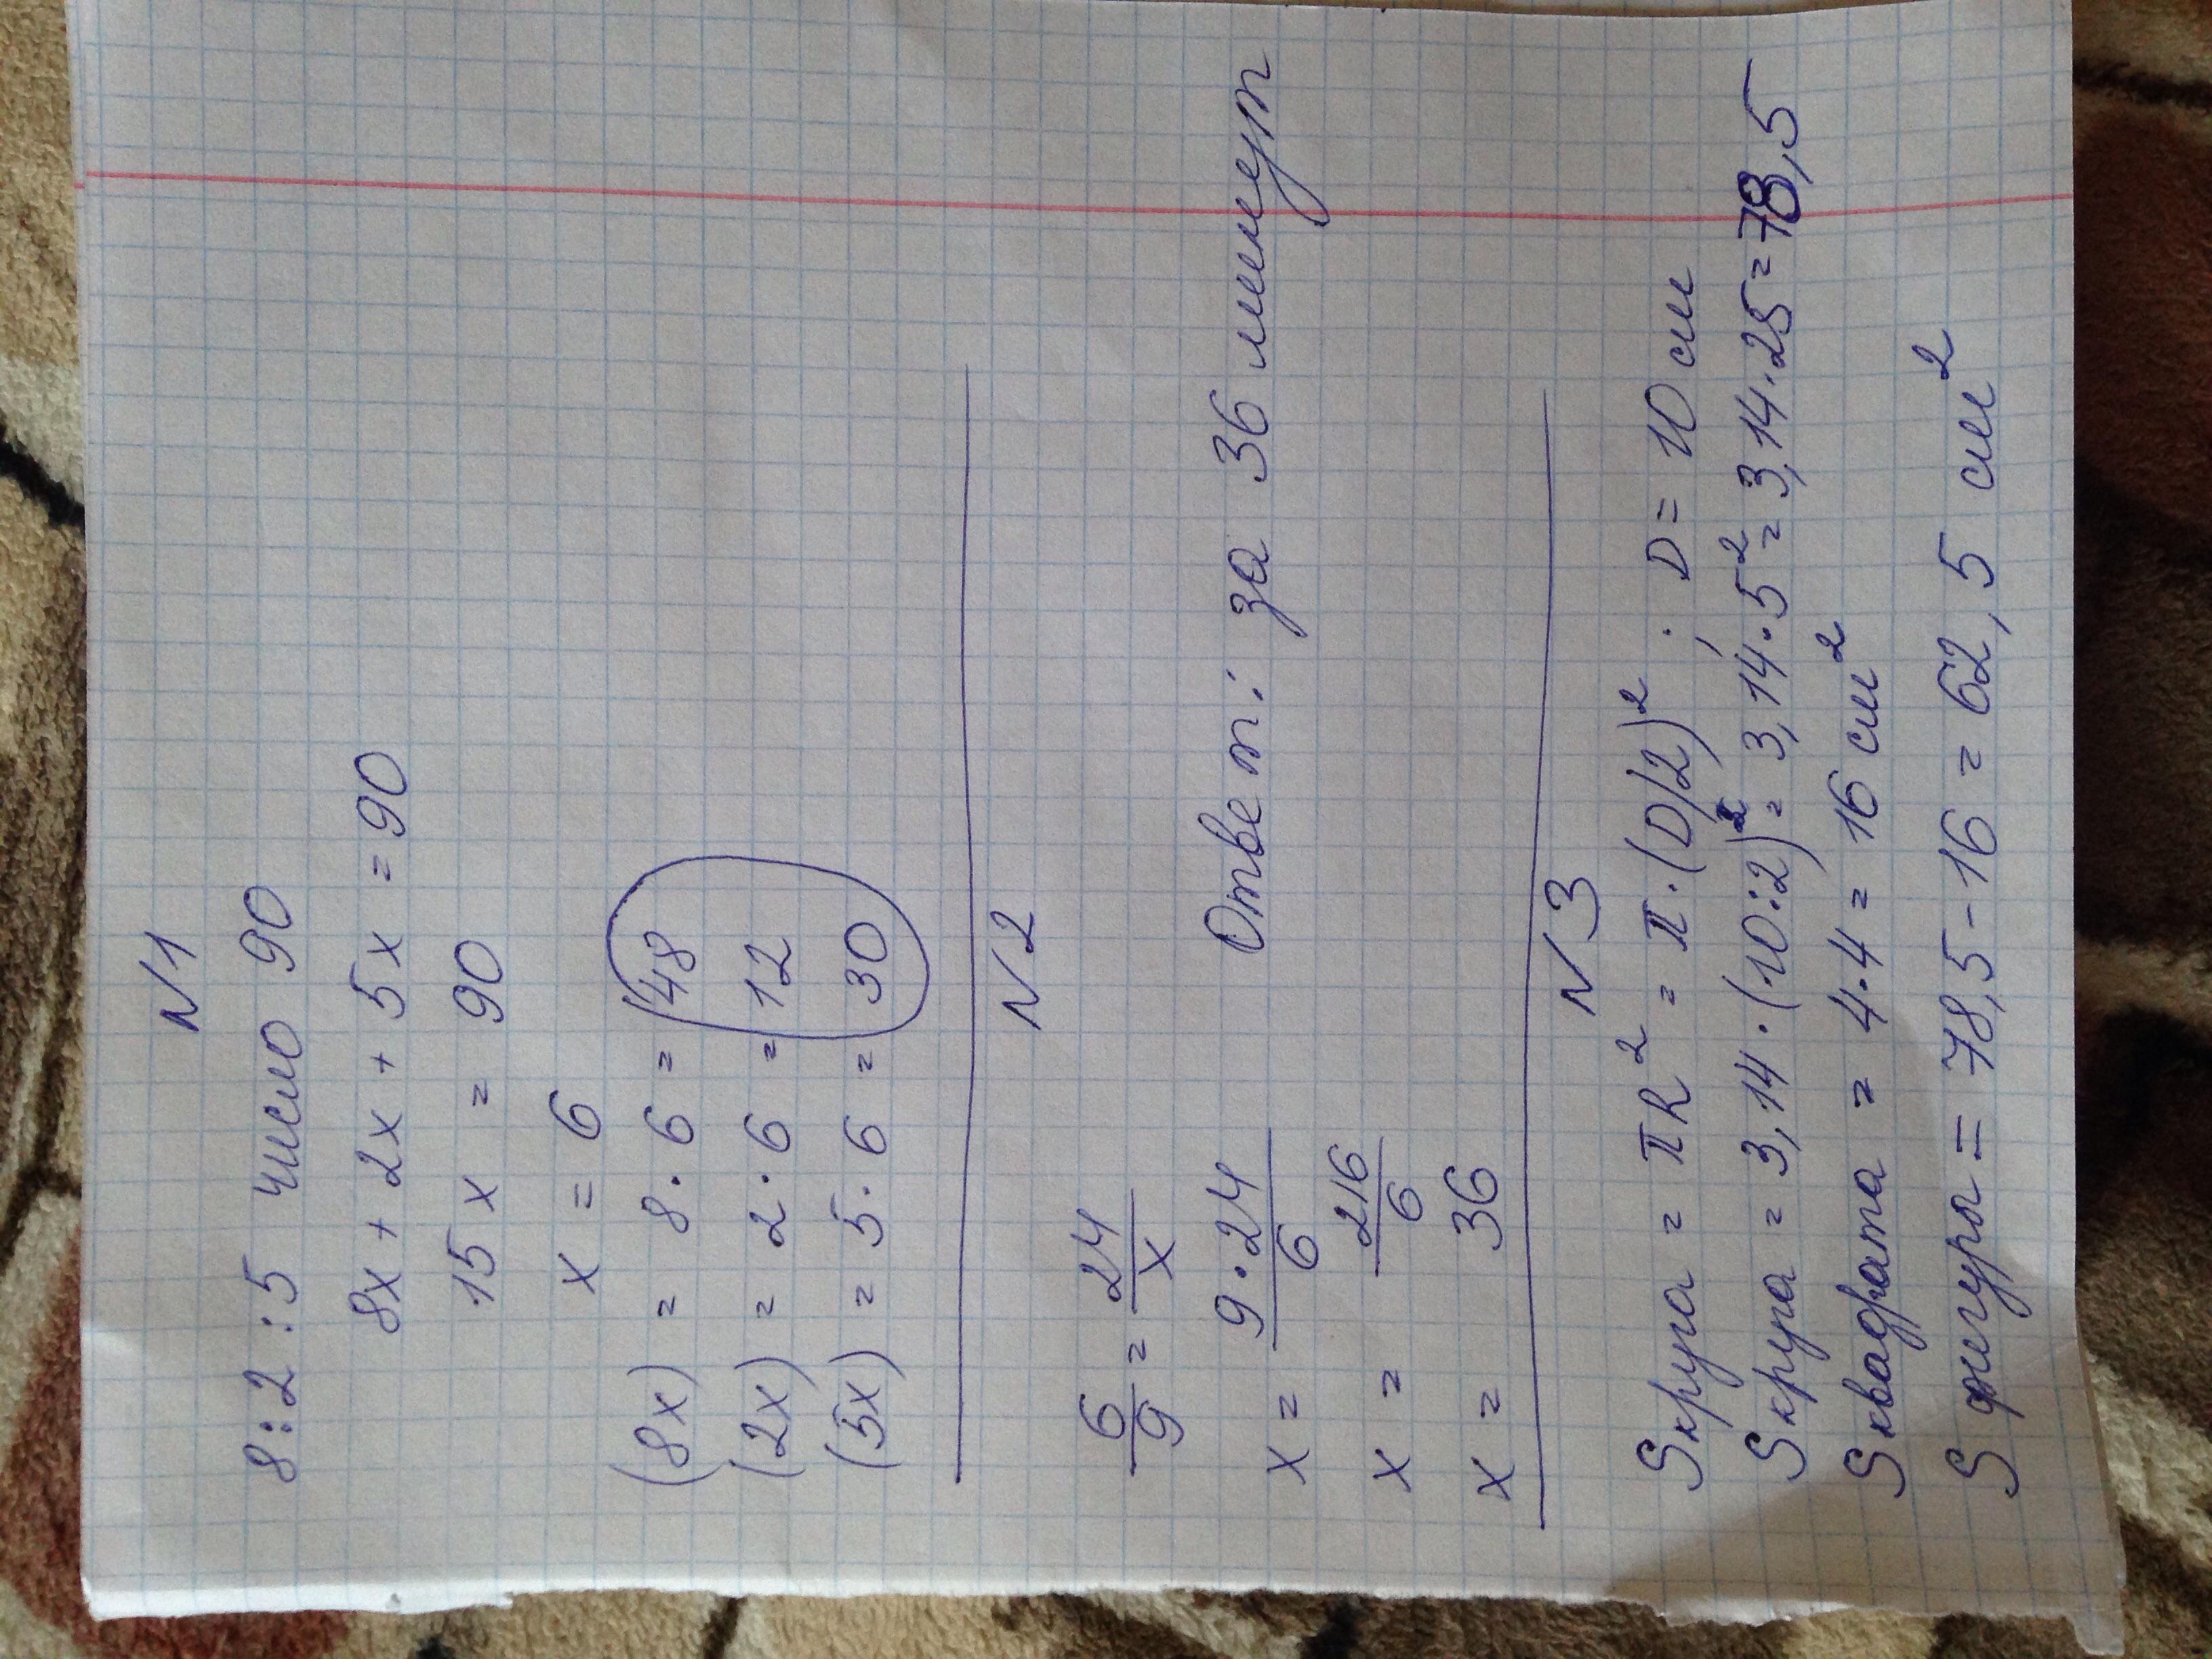 N1
8:2:5 число 90
8x + 2x + 5x = 90
15x = 90
x = 6
(8x) = 8·6 = 48
(2x) = 2·6 = 12
(5x) = 5·6 = 30
N2
6/9 = 24/x
x = 9·24/6 Ответ: за 36 минут
x = 216/6
x = 36
N3
Sкруга = πR² = π·(D/2)²; D = 10 см
Sкруга = 3,14·(10:2)² = 3,14·5² = 3,14·25 = 78,5
Sквадрата = 4·4 = 16 см²
S фигуры = 78,5-16 = 62,5 см²